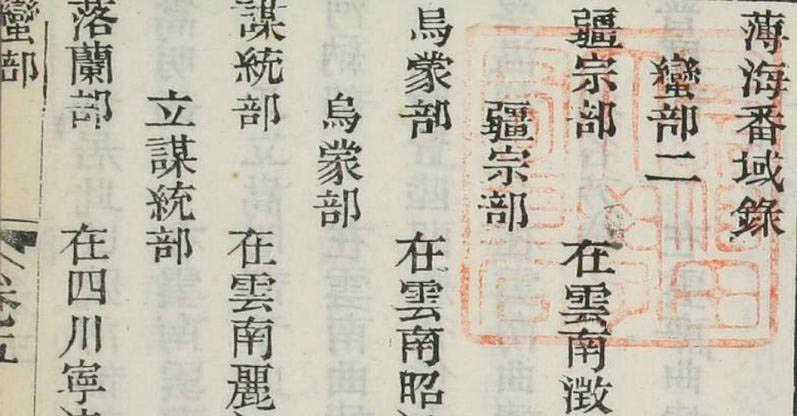 薄海番域錄
蠻部二
疆宗部 在雲南澂
疆宗部
烏蒙部 在雲南昭
烏蒙部
謀統部 在雲南麗
立謀統部
落蘭部 在四川寧
蠻部
卷五